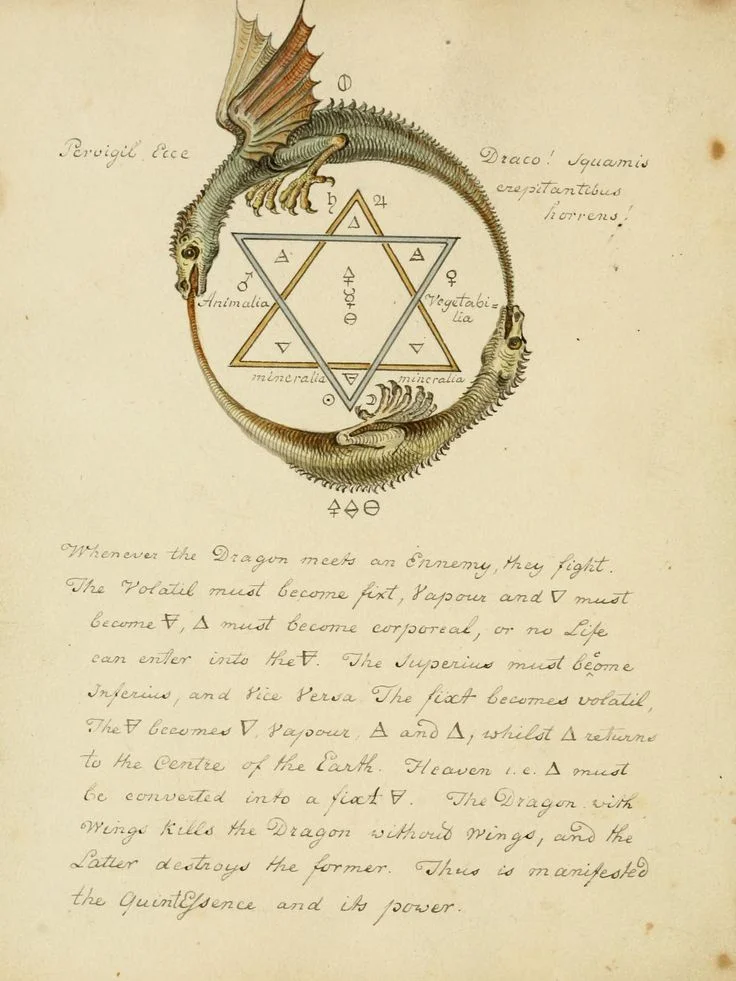 🜔
Pervigil Ecce
Draco! Squamis
crepitantibus
horrens!
♄ ♃
🜂
🜁 🜁
♂ ♀
🜍
☿
🜔
Animalia
Vegetabi=
lia
🜄 🜄
mineralia 🜃 mineralia
☉ ☽
🜔
Whenever the Dragon meets an Ennemy, they fight.
The Volatil must become fixt, Vapour and 🜄 must
become 🜃, 🜂 must become corporeal, or no Life
can enter into the 🜃. The Superius must become
Inferius, and Vice Versa The fixt becomes volatil,
The 🜃 becomes 🜄, Vapour, 🜁 and 🜂, whilst 🜂 returns
to the Centre of the Earth. Heaven i.e. 🜂 must
be converted into a fixt 🜃. The Dragon with
Wings kills the Dragon without Wings, and the
Latter destroys the former. Thus is manifested
the QuintEssence and its power.